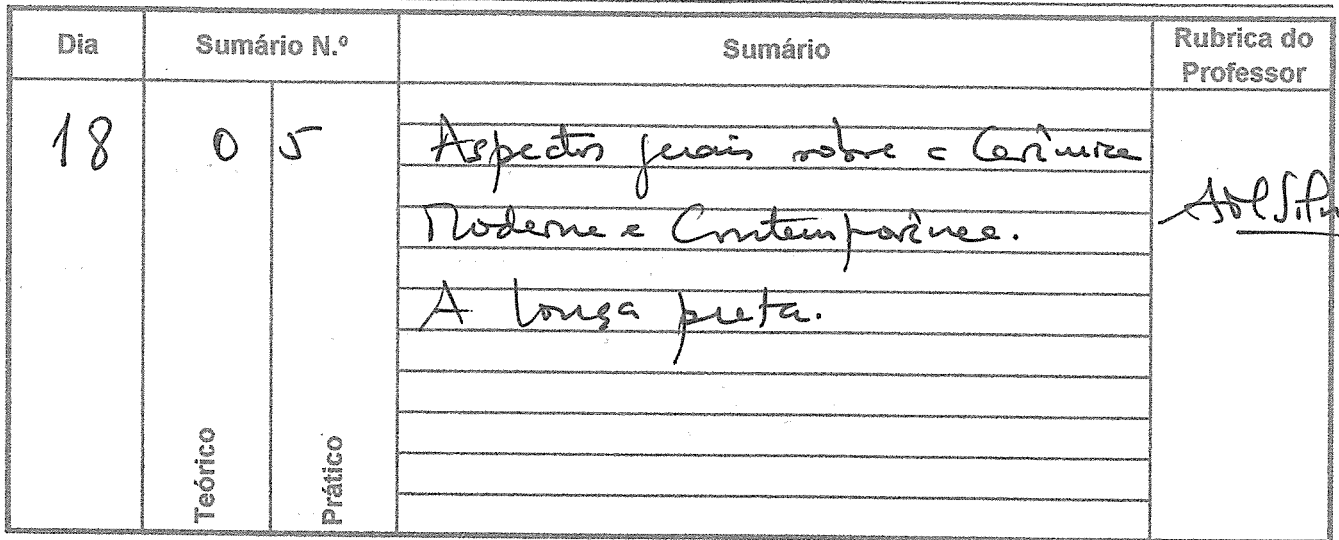 Dia
Sumário N.º
Sumário
Rubrica do
Professor
18
0
5
Aspectos gerais sobre a Cerâmica
Moderna e Contemporânea.
A louça preta.
Teórico
Prático